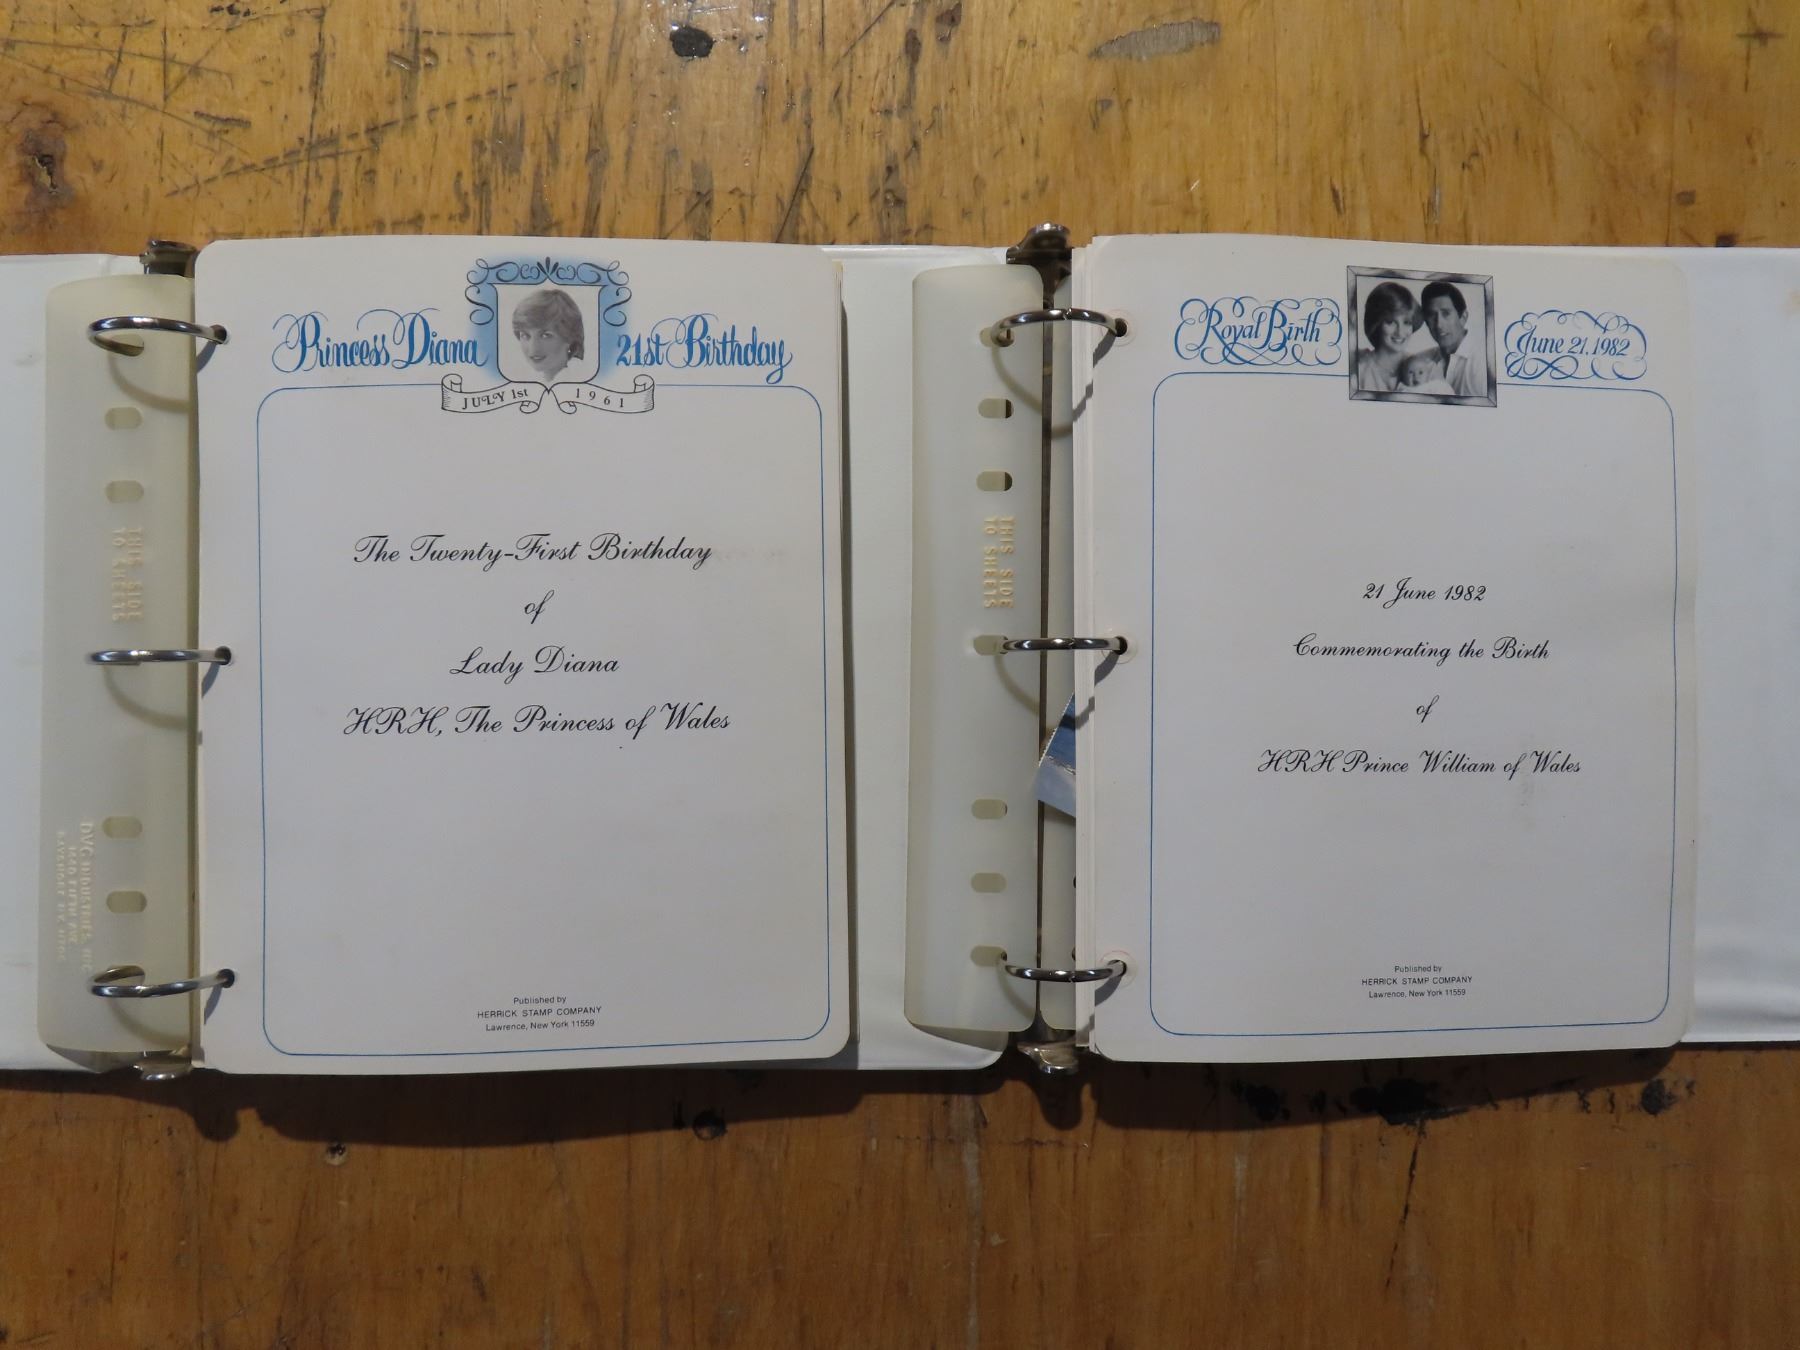 Princess Diana 21st Birthday
JULY 1st 1961
The Twenty-First Birthday
of
Lady Diana
HRH, The Princess of Wales
Published by
HERRICK STAMP COMPANY
Lawrence, New York 11559
THIS SIDE
TO SHEETS
DVG INDUSTRIES, INC
THIS SIDE
TO SHEETS
Royal Birth June 21, 1982
21 June 1982
Commemorating the Birth
of
HRH Prince William of Wales
Published by
HERRICK STAMP COMPANY
Lawrence, New York 11559